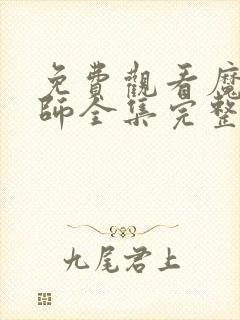 免費觀看魔
師全集完整
九尾君上